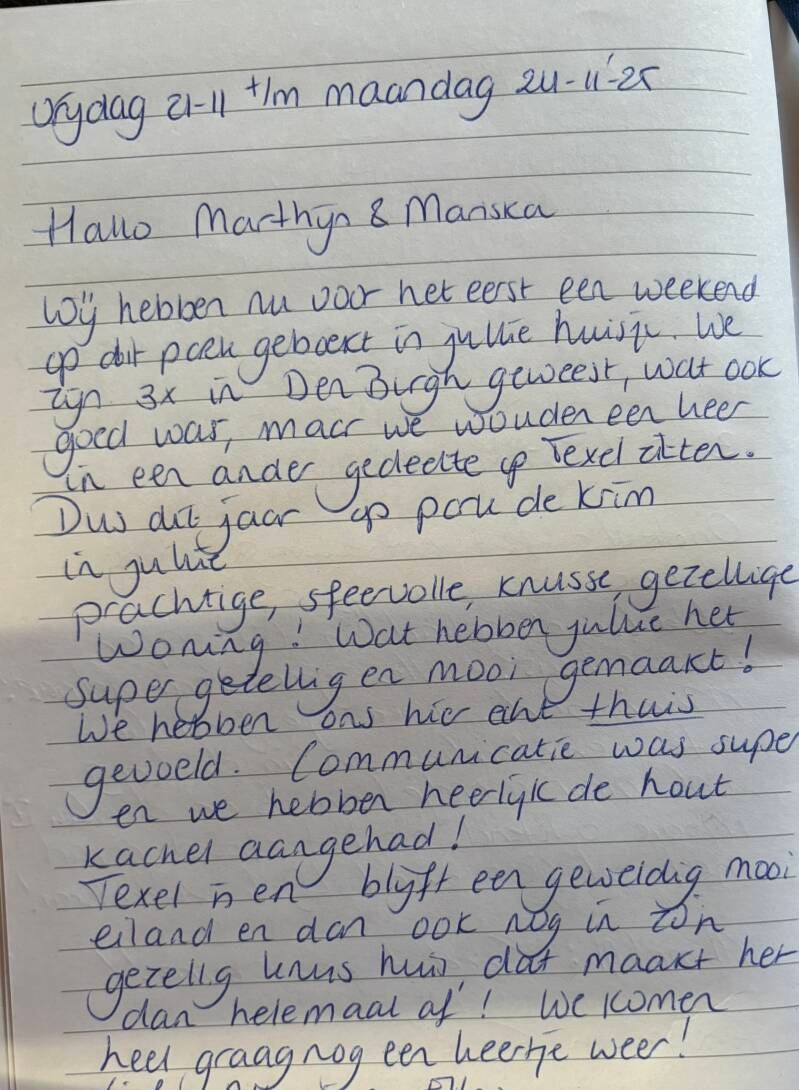 Vrijdag 21-11 t/m maandag 24-11-'25
Hallo Marthijn & Mariska
Wij hebben nu voor het eerst een weekend
op dit park geboekt in jullie huisje. We
zijn 3x in Den Burgh geweest, wat ook
goed was, maar we wouden een keer
in een ander gedeelte op Texel zitten.
Dus dit jaar op park de Krim
in jullie
prachtige, sfeervolle, knusse, gezellige
woning! Wat hebben jullie het
super gezellig en mooi gemaakt!
We hebben ons hier echt thuis
gevoeld. Communicatie was super
en we hebben heerlijk de hout
kachel aangehad!
Texel is en blijft een geweldig mooi
eiland en dan ook nog in zo'n
gezellig knus huis, dat maakt het
dan helemaal af! We komen
heel graag nog een keertje weer!